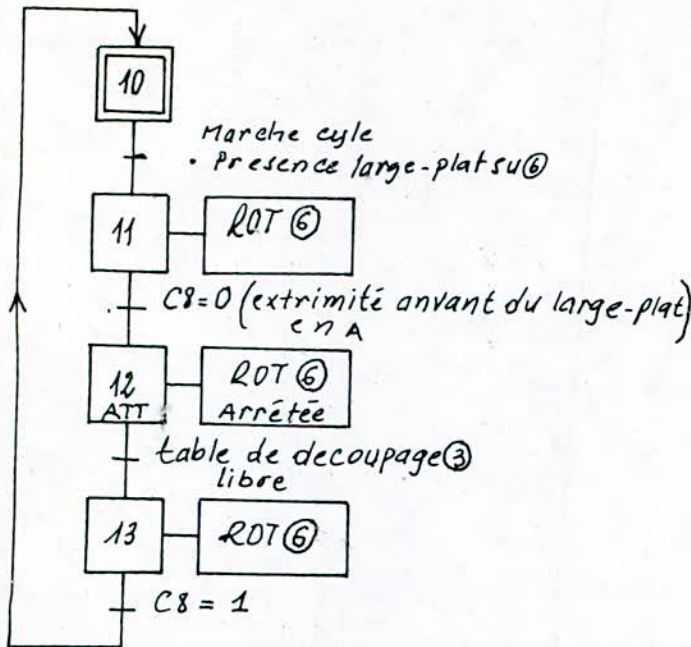 10
Marche cyle
. Presence large-plat su⑥
11
ROT ⑥
C8=0 (extrimité anvant du large-plat)
en A
12
ATT
ROT ⑥
Arrétée
table de decoupage③
libre
13
ROT⑥
C8 = 1